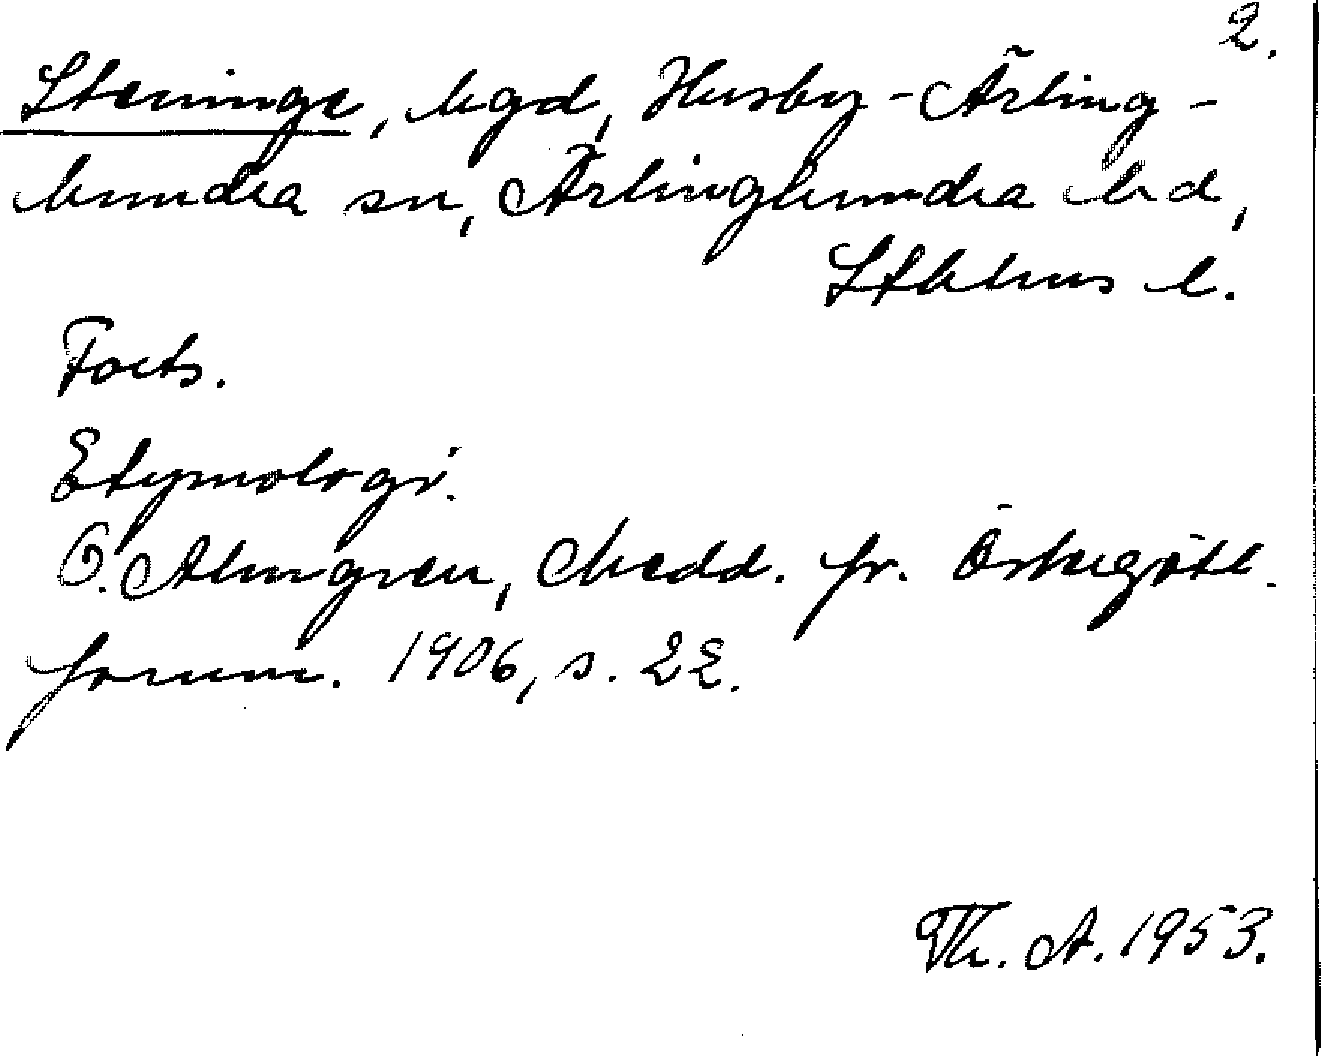 2.
Steninge, hgd, Husby-Ärling-
hundra sn, Ärlinghundra hd,
Sthlms l.
Forts.
Etymologi.
O. Almgren, Medd. fr. Östergötl.
fornm. 1906, s. 22.
Th. A. 1953.